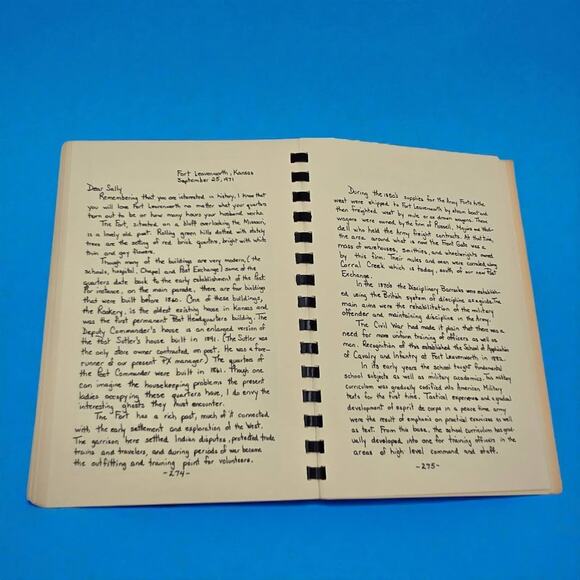 Fort Leavenworth, Kansas
September 25, 1971
Dear Sally
Remembering that you are interested in history, I know that
you will love Fort Leavenworth no matter what your quarters
turn out to be or how many hours your husband works.
The Fort, situated on a bluff overlooking the Missouri,
is a lovely old post. Rolling green hills dotted with stately
trees are the setting of red brick quarters, bright with white
trim and gay flowers.
Though many of the buildings are very modern, (the
schools, hospital, Chapel and Post Exchange) some of the
quarters date back to the early establishment of the Post.
For instance, on the main parade, there are four buildings
that were built before 1860. One of these buildings,
the Rookery, is the oldest existing house in Kansas and
was the first permanent Post Headquarters building. The
Deputy Commander's house is an enlarged version of
the Post Sutler's house built in 1841. (The Sutler was
the only store owner contracted on post. He was a fore-
runner of our present PX manager.) The quarters of
the Post Commander were built in 1861. Though one
can imagine the housekeeping problems the present
ladies occupying these quarters have, I do envy the
interesting ghosts they must encounter.
The Fort has a rich past, much of it connected
with the early settlement and exploration of the West.
The garrison here settled Indian disputes, protected trade
trains and travelers, and during periods of war became
the outfitting and training point for volunteers.
-274-
During the 1850's supplies for the Army Forts in the
west were shipped to Fort Leavenworth by steam boat and
then freighted west by mule or ox drawn wagons. These
wagons were owned by the firm of Russell, Majors and Wad-
dell who held the Army freight contracts. At that time,
the area around what is now the Front Gate was a
mass of warehouses, smithies, and wheelwrights owned
by this firm. Their mules and oxen were corraled along
Corral Creek which is today, south of our new Post
Exchange.
In the 1870s the Disciplinary Barracks was establish-
ed using the British system of discipline as a guide. The
main aims were the rehabilitation of the military
offender and maintaining discipline in the Army.
The Civil War had made it plain that there was a
need for more uniform training of officers as well as
men. Recognition of this established the School of Application
of Cavalry and Infantry at Fort Leavenworth in 1882.
In its early years the school taught fundamental
school subjects as well as military academics. The military
curriculum was gradually codified into American Military
texts for the first time. Tactical experience and a gradual
development of esprit de corps in a peace time army
were the result of emphasis on practical exercises as well
as text. From this base, the school curriculum has grad-
ually developed into one for training officers in the
areas of high level command and staff.
-275-